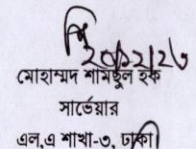 মোহাম্মদ শামছুল হক
সার্ভেয়ার
এল,এ শাখা-৩, ঢাকা